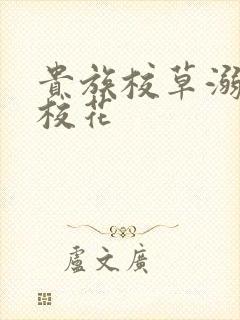 貴族校草溺
校花
盧文廣